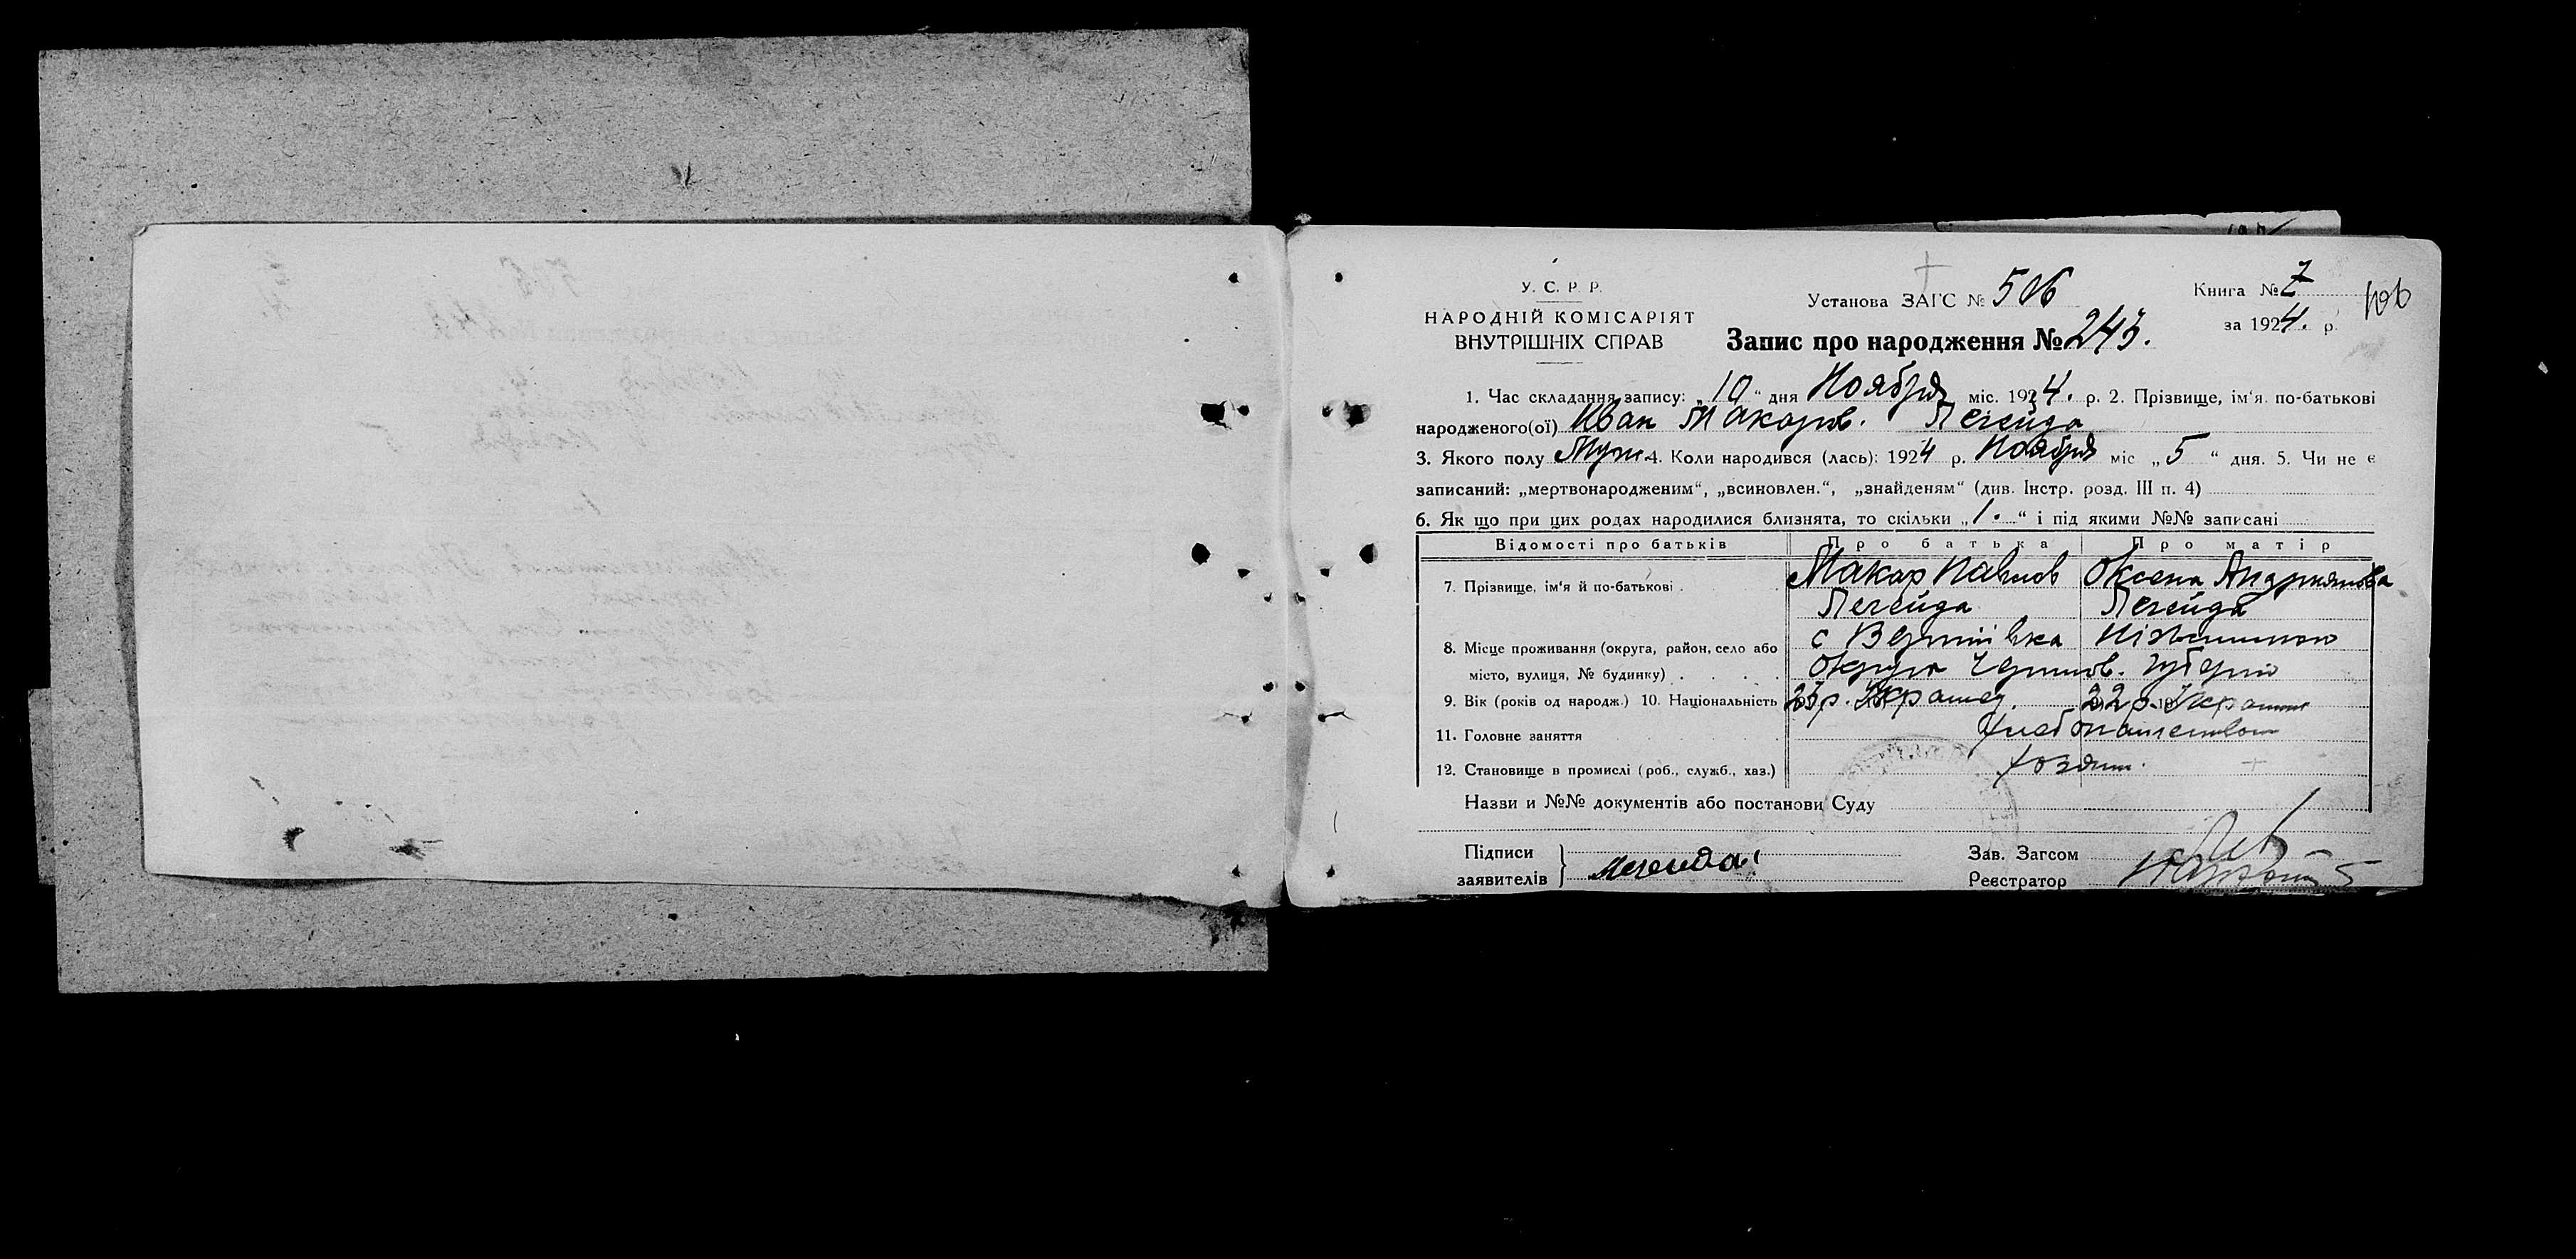 У. С. Р. Р.
НАРОДНІЙ КОМІСАРІЯТ
ВНУТРІШНІХ СПРАВ
Установа ЗАГС № 506
Запис про народження № 243.
Книга № 2
за 1924. р.
106
1. Час складання запису: „10“ дня Ноября міс. 1924. р. 2. Прізвище, ім‘я. по-батькові
народженого(ої) Иван Макаров. Легейда
3. Якого полу Муж. 4. Коли народився (лась): 1924 р. Ноября міс „5“ дня. 5. Чи не є
записаний: „мертвонародженим“, „всиновлен.“, „знайденям“ (див. Інстр. розд. III п. 4)
6. Як що при цих родах народилися близнята, то скільки „1.“ і під якими №№ записані
Відомості про батьків Про батька Про матір
7. Прізвище, ім‘я й по-батькові Макар Павлов Оксена Андриянова
Легейда Легейда
8. Місце проживання (округа, район, село або с Вертіївка Ніженської
місто, вулиця, № будинку) Округи Чернигов. губерні
9. Вік (років од народж.) 10. Національність 23 р. Украинец. 22 р. Украин
11. Головне заняття Хлебопашеством
12. Становище в промислі (роб., служб., хаз.) хозяин.
Назви и №№ документів або постанови Суду
Підписи
заявителів Легейда
Зав. Загсом
Реєстратор